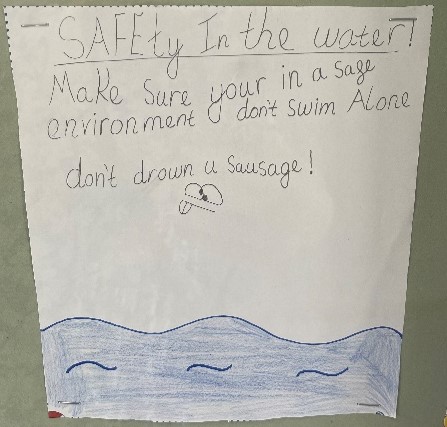 SAFEty In the water!
Make sure your in a sage
environment & don't swim Alone
don't drown u sausage!